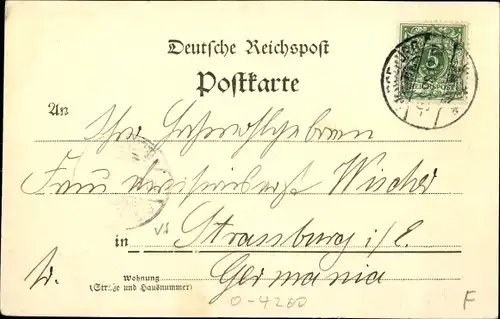 Deutsche Reichspost
Postkarte
5
REICHSPOST
An
Ihr Hochwohlgeboren
Frau Wischer
in Strassburg i/E.
Germania
Wohnung
(Straße und Hausnummer)
0-4260
F